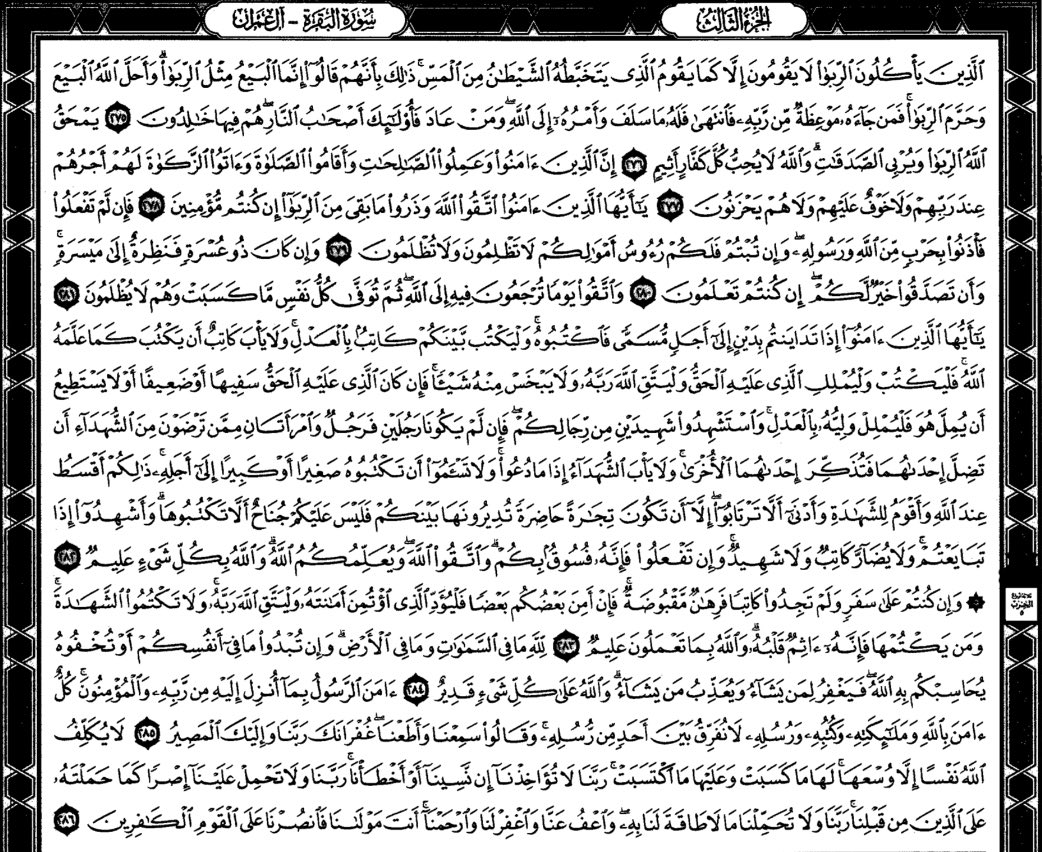 الجزء الثالث
سورة البقرة - آل عمران
ٱلَّذِينَ يَأْكُلُونَ ٱلرِّبَوٰا۟ لَا يَقُومُونَ إِلَّا كَمَا يَقُومُ ٱلَّذِى يَتَخَبَّطُهُ ٱلشَّيْطَٰنُ مِنَ ٱلْمَسِّ ۚ ذَٰلِكَ بِأَنَّهُمْ قَالُوٓا۟ إِنَّمَا ٱلْبَيْعُ مِثْلُ ٱلرِّبَوٰا۟ ۗ وَأَحَلَّ ٱللَّهُ ٱلْبَيْعَ
وَحَرَّمَ ٱلرِّبَوٰا۟ ۚ فَمَن جَآءَهُۥ مَوْعِظَةٌ مِّن رَّبِّهِۦ فَٱنتَهَىٰ فَلَهُۥ مَا سَلَفَ وَأَمْرُهُۥٓ إِلَى ٱللَّهِ ۖ وَمَنْ عَادَ فَأُو۟لَٰٓئِكَ أَصْحَٰبُ ٱلنَّارِ ۖ هُمْ فِيهَا خَٰلِدُونَ ٢٧٥ يَمْحَقُ
ٱللَّهُ ٱلرِّبَوٰا۟ وَيُرْبِى ٱلصَّدَقَٰتِ ۗ وَٱللَّهُ لَا يُحِبُّ كُلَّ كَفَّارٍ أَثِيمٍ ٢٧٦ إِنَّ ٱلَّذِينَ ءَامَنُوا۟ وَعَمِلُوا۟ ٱلصَّٰلِحَٰتِ وَأَقَامُوا۟ ٱلصَّلَوٰةَ وَءَاتَوُا۟ ٱلزَّكَوٰةَ لَهُمْ أَجْرُهُمْ
عِندَ رَبِّهِمْ وَلَا خَوْفٌ عَلَيْهِمْ وَلَا هُمْ يَحْزَنُونَ ٢٧٧ يَٰٓأَيُّهَا ٱلَّذِينَ ءَامَنُوا۟ ٱتَّقُوا۟ ٱللَّهَ وَذَرُوا۟ مَا بَقِىَ مِنَ ٱلرِّبَوٰٓا۟ إِن كُنتُم مُّؤْمِنِينَ ٢٧٨ فَإِن لَّمْ تَفْعَلُوا۟
فَأْذَنُوا۟ بِحَرْبٍ مِّنَ ٱللَّهِ وَرَسُولِهِۦ ۖ وَإِن تُبْتُمْ فَلَكُمْ رُءُوسُ أَمْوَٰلِكُمْ لَا تَظْلِمُونَ وَلَا تُظْلَمُونَ ٢٧٩ وَإِن كَانَ ذُو عُسْرَةٍ فَنَظِرَةٌ إِلَىٰ مَيْسَرَةٍ ۚ
وَأَن تَصَدَّقُوا۟ خَيْرٌ لَّكُمْ ۖ إِن كُنتُمْ تَعْلَمُونَ ٢٨٠ وَٱتَّقُوا۟ يَوْمًا تُرْجَعُونَ فِيهِ إِلَى ٱللَّهِ ۖ ثُمَّ تُوَفَّىٰ كُلُّ نَفْسٍ مَّا كَسَبَتْ وَهُمْ لَا يُظْلَمُونَ ٢٨١
يَٰٓأَيُّهَا ٱلَّذِينَ ءَامَنُوٓا۟ إِذَا تَدَايَنتُم بِدَيْنٍ إِلَىٰٓ أَجَلٍ مُّسَمًّى فَٱكْتُبُوهُ ۚ وَلْيَكْتُب بَّيْنَكُمْ كَاتِبٌۢ بِٱلْعَدْلِ ۚ وَلَا يَأْبَ كَاتِبٌ أَن يَكْتُبَ كَمَا عَلَّمَهُ
ٱللَّهُ ۚ فَلْيَكْتُبْ وَلْيُمْلِلِ ٱلَّذِى عَلَيْهِ ٱلْحَقُّ وَلْيَتَّقِ ٱللَّهَ رَبَّهُۥ وَلَا يَبْخَسْ مِنْهُ شَيْـًٔا ۚ فَإِن كَانَ ٱلَّذِى عَلَيْهِ ٱلْحَقُّ سَفِيهًا أَوْ ضَعِيفًا أَوْ لَا يَسْتَطِيعُ
أَن يُمِلَّ هُوَ فَلْيُمْلِلْ وَلِيُّهُۥ بِٱلْعَدْلِ ۚ وَٱسْتَشْهِدُوا۟ شَهِيدَيْنِ مِن رِّجَالِكُمْ ۖ فَإِن لَّمْ يَكُونَا رَجُلَيْنِ فَرَجُلٌ وَٱمْرَأَتَانِ مِمَّن تَرْضَوْنَ مِنَ ٱلشُّهَدَآءِ أَن
تَضِلَّ إِحْدَىٰهُمَا فَتُذَكِّرَ إِحْدَىٰهُمَا ٱلْأُخْرَىٰ ۚ وَلَا يَأْبَ ٱلشُّهَدَآءُ إِذَا مَا دُعُوا۟ ۚ وَلَا تَسْـَٔمُوٓا۟ أَن تَكْتُبُوهُ صَغِيرًا أَوْ كَبِيرًا إِلَىٰٓ أَجَلِهِۦ ۚ ذَٰلِكُمْ أَقْسَطُ
عِندَ ٱللَّهِ وَأَقْوَمُ لِلشَّهَٰدَةِ وَأَدْنَىٰٓ أَلَّا تَرْتَابُوٓا۟ ۖ إِلَّآ أَن تَكُونَ تِجَٰرَةً حَاضِرَةً تُدِيرُونَهَا بَيْنَكُمْ فَلَيْسَ عَلَيْكُمْ جُنَاحٌ أَلَّا تَكْتُبُوهَا ۗ وَأَشْهِدُوٓا۟ إِذَا
تَبَايَعْتُمْ ۚ وَلَا يُضَآرَّ كَاتِبٌ وَلَا شَهِيدٌ ۚ وَإِن تَفْعَلُوا۟ فَإِنَّهُۥ فُسُوقٌۢ بِكُمْ ۗ وَٱتَّقُوا۟ ٱللَّهَ ۖ وَيُعَلِّمُكُمُ ٱللَّهُ ۗ وَٱللَّهُ بِكُلِّ شَىْءٍ عَلِيمٌ ٢٨٢
۞ وَإِن كُنتُمْ عَلَىٰ سَفَرٍ وَلَمْ تَجِدُوا۟ كَاتِبًا فَرِهَٰنٌ مَّقْبُوضَةٌ ۖ فَإِنْ أَمِنَ بَعْضُكُم بَعْضًا فَلْيُؤَدِّ ٱلَّذِى ٱؤْتُمِنَ أَمَٰنَتَهُۥ وَلْيَتَّقِ ٱللَّهَ رَبَّهُۥ ۗ وَلَا تَكْتُمُوا۟ ٱلشَّهَٰدَةَ ۚ
وَمَن يَكْتُمْهَا فَإِنَّهُۥٓ ءَاثِمٌ قَلْبُهُۥ ۗ وَٱللَّهُ بِمَا تَعْمَلُونَ عَلِيمٌ ٢٨٣ لِّلَّهِ مَا فِى ٱلسَّمَٰوَٰتِ وَمَا فِى ٱلْأَرْضِ ۗ وَإِن تُبْدُوا۟ مَا فِىٓ أَنفُسِكُمْ أَوْ تُخْفُوهُ
يُحَاسِبْكُم بِهِ ٱللَّهُ ۖ فَيَغْفِرُ لِمَن يَشَآءُ وَيُعَذِّبُ مَن يَشَآءُ ۗ وَٱللَّهُ عَلَىٰ كُلِّ شَىْءٍ قَدِيرٌ ٢٨٤ ءَامَنَ ٱلرَّسُولُ بِمَآ أُنزِلَ إِلَيْهِ مِن رَّبِّهِۦ وَٱلْمُؤْمِنُونَ ۚ كُلٌّ
ءَامَنَ بِٱللَّهِ وَمَلَٰٓئِكَتِهِۦ وَكُتُبِهِۦ وَرُسُلِهِۦ لَا نُفَرِّقُ بَيْنَ أَحَدٍ مِّن رُّسُلِهِۦ ۚ وَقَالُوا۟ سَمِعْنَا وَأَطَعْنَا ۖ غُفْرَانَكَ رَبَّنَا وَإِلَيْكَ ٱلْمَصِيرُ ٢٨٥ لَا يُكَلِّفُ
ٱللَّهُ نَفْسًا إِلَّا وُسْعَهَا ۚ لَهَا مَا كَسَبَتْ وَعَلَيْهَا مَا ٱكْتَسَبَتْ ۗ رَبَّنَا لَا تُؤَاخِذْنَآ إِن نَّسِينَآ أَوْ أَخْطَأْنَا ۚ رَبَّنَا وَلَا تَحْمِلْ عَلَيْنَآ إِصْرًا كَمَا حَمَلْتَهُۥ
عَلَى ٱلَّذِينَ مِن قَبْلِنَا ۚ رَبَّنَا وَلَا تُحَمِّلْنَا مَا لَا طَاقَةَ لَنَا بِهِۦ ۖ وَٱعْفُ عَنَّا وَٱغْفِرْ لَنَا وَٱرْحَمْنَآ ۚ أَنتَ مَوْلَىٰنَا فَٱنصُرْنَا عَلَى ٱلْقَوْمِ ٱلْكَٰفِرِينَ ٢٨٦